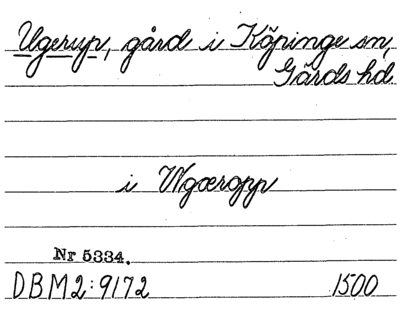 Ugerup, gård i Köpinge sn,
Gärds hd.
i Wgæropp
Nr 5334.
DBM2:9172 1500